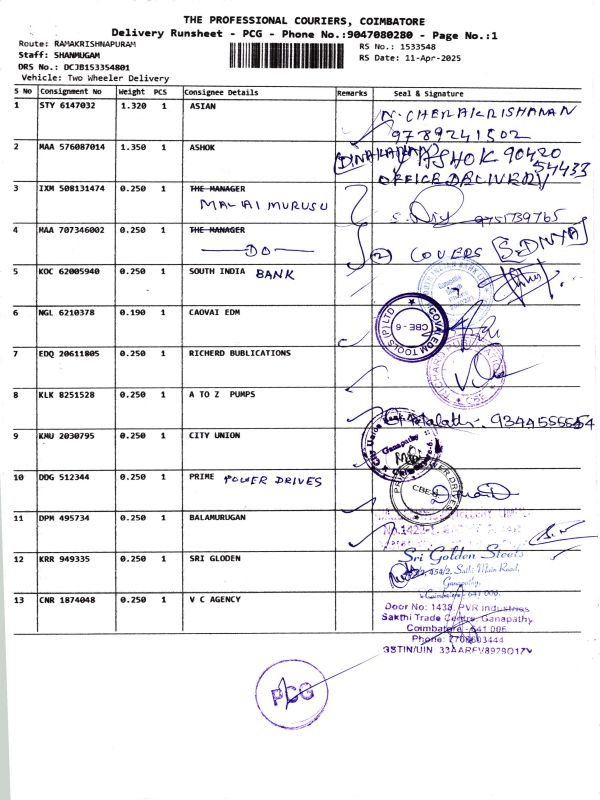 THE PROFESSIONAL COURIERS, COIMBATORE
Delivery Runsheet - PCG - Phone No.:9047080280 - Page No.:1
Route: RAMAKRISHNAPURAM
Staff: SHANMUGAM
DRS No.: DCJB153354801
Vehicle: Two Wheeler Delivery
RS No.: 1533548
RS Date: 11-Apr-2025
S No Consignment No Weight PCS Consignee Details Remarks Seal & Signature
1 STY 6147032 1.320 1 ASIAN
9789241802
2 MAA 576087014 1.350 1 ASHOK
ASHOK 90420
54433
OFFICE DELIVERY
3 IXM 508131474 0.250 1 THE MANAGER
MALAI MURUSU
9751739765
4 MAA 707346002 0.250 1 THE MANAGER
DO
2 COVERS [S. DIVYA]
5 KOC 62005940 0.250 1 SOUTH INDIA BANK
6 NGL 6210378 0.190 1 CAOVAI EDM
COVAI EDM TOOLS (P) LTD
CBE-6
7 EDQ 20611805 0.250 1 RICHERD BUBLICATIONS
CBE
8 KLK 8251528 0.250 1 A TO Z PUMPS
9344555554
9 KMU 2030795 0.250 1 CITY UNION
Ganapathy
10 DDG 512344 0.250 1 PRIME POWER DRIVES
PRIME POWER DRIVES
11 DPM 495734 0.250 1 BALAMURUGAN
12 KRR 949335 0.250 1 SRI GLODEN
Sri Golden Steels
454/2, Sathi Main Road,
Ganapathy,
Coimbatore - 641 006.
13 CNR 1874048 0.250 1 V C AGENCY
Door No: 1438, PVR Industries
Sakthi Trade Centre, Ganapathy
Coimbatore - 641 006
Phone:
GSTIN/UIN
PCG